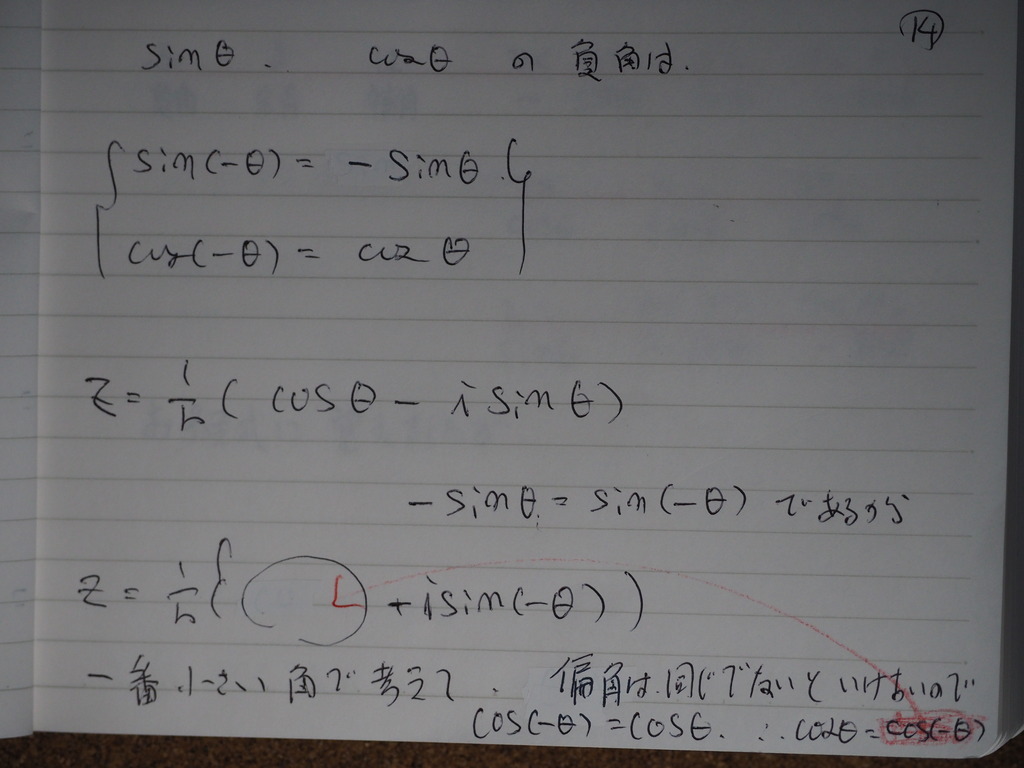 ⑭
sinθ. cosθ の 負角は.
sin(-θ) = - sinθ.
cos(-θ) = cosθ
z = 1/r ( cosθ - i sinθ )
- sinθ = sin(-θ) であるから
z = 1/r { + i sin(-θ) )
一番小さい角で考えて. 偏角は同じでないといけないので
cos(-θ) = cosθ. ∴ cosθ = cos(-θ)